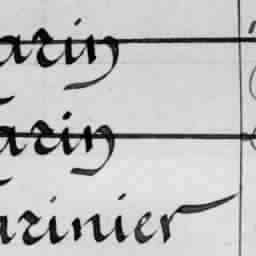 arin
arin
arinier